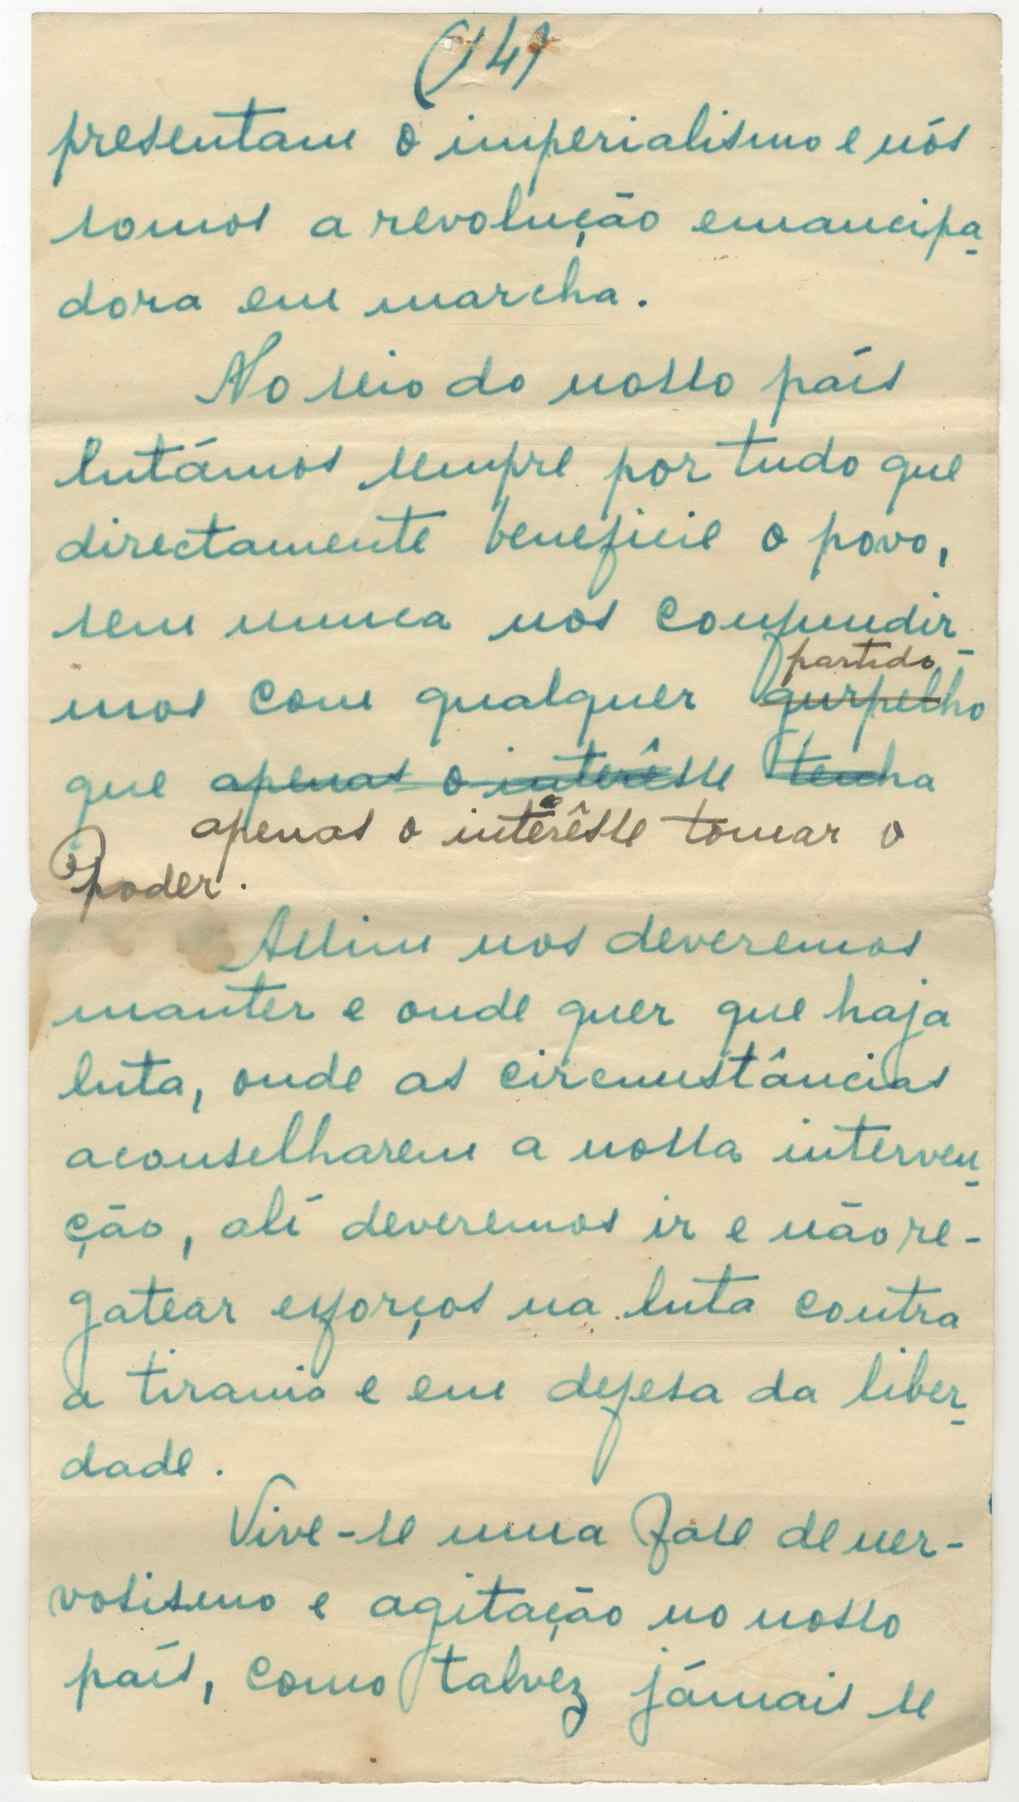 (14)
presentam o imperialismo e nós
somos a revolução emancipa-
dora em marcha.
No seio do nosso país
lutámos sempre por tudo que
directamente beneficie o povo,
sem nunca nos confundir-
partido
mos com qualquer gurpelho
que apenas o interêsse tenha
apenas o interêsse tomar o
poder.
Assim nos deveremos
manter e onde quer que haja
luta, onde as circunstâncias
aconselharem a nossa interven-
ção, alí deveremos ir e não re-
gatear esforços na luta contra
a tirania e em defesa da liber-
dade.
Vive-se uma fase de ner-
vosismo e agitação no nosso
país, como talvez jámais se